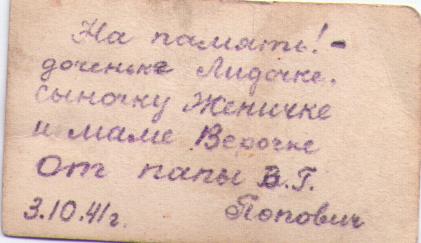 На память! -
доченьке Лидочке.
сыночку Женичке
и маме Верочке
От папы В.Г.
3.10.41г. Попович